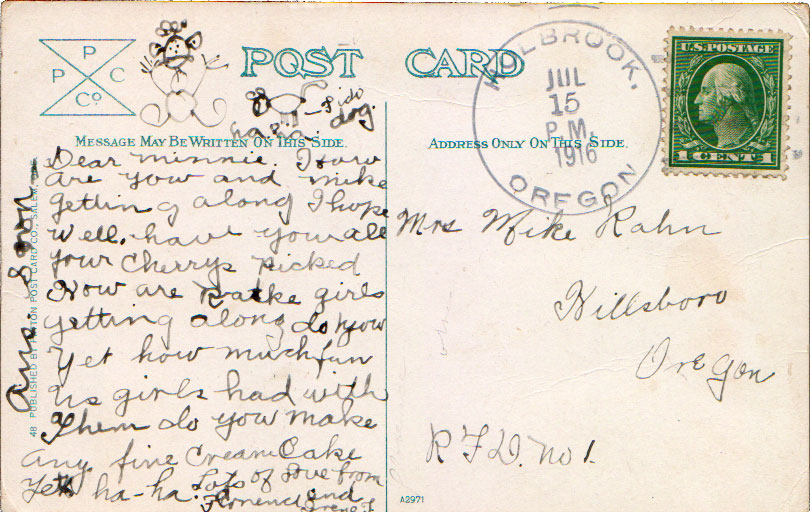 P P C Co.
POST CARD
Fido
ha-ha. dog.
MESSAGE MAY BE WRITTEN ON THIS SIDE.
Dear Minnie. How
are you and mike
getting along I hope
well. have you all
your Cherrys picked
How are the girls
getting along do you
yet how much fun
us girls had with
them do you make
any fine Cream Cake
yet ha-ha. Lots of love from
Florence and
Irene F.
Ans. Soon
48 PUBLISHED BY PATTON POST CARD CO., SALEM,
ADDRESS ONLY ON THIS SIDE.
HOLBROOK,
JUL
15
P.M.
1916
OREGON
U.S. POSTAGE
1 CENT 1
Mrs Mike Kahn
Hillsboro
Oregon
R F D. no 1.
A2971